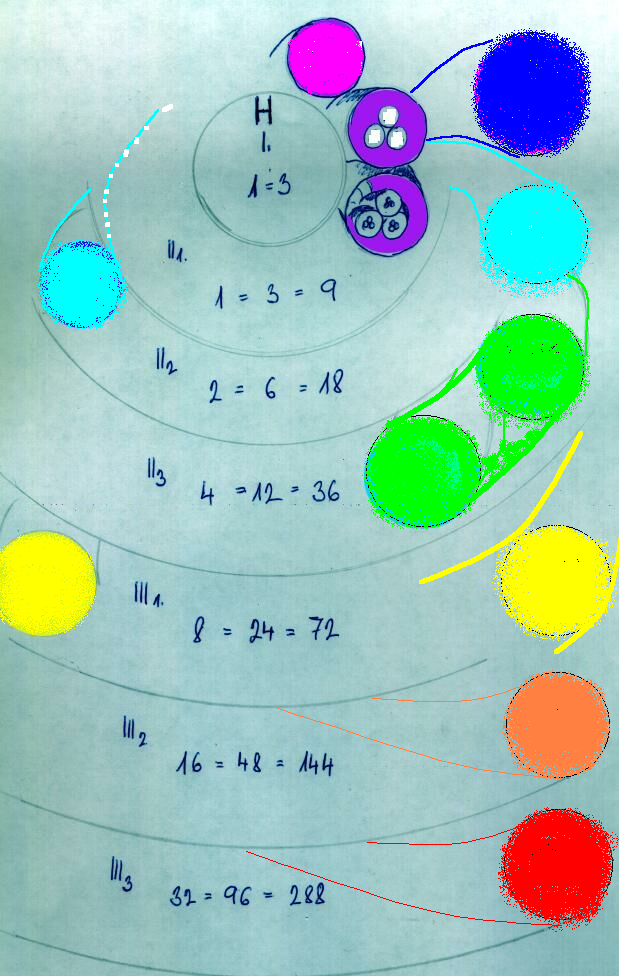 H
I.
1 = 3
II1.
1 = 3 = 9
II2
2 = 6 = 18
II3
4 = 12 = 36
III1.
8 = 24 = 72
III2
16 = 48 = 144
III3
32 = 96 = 288